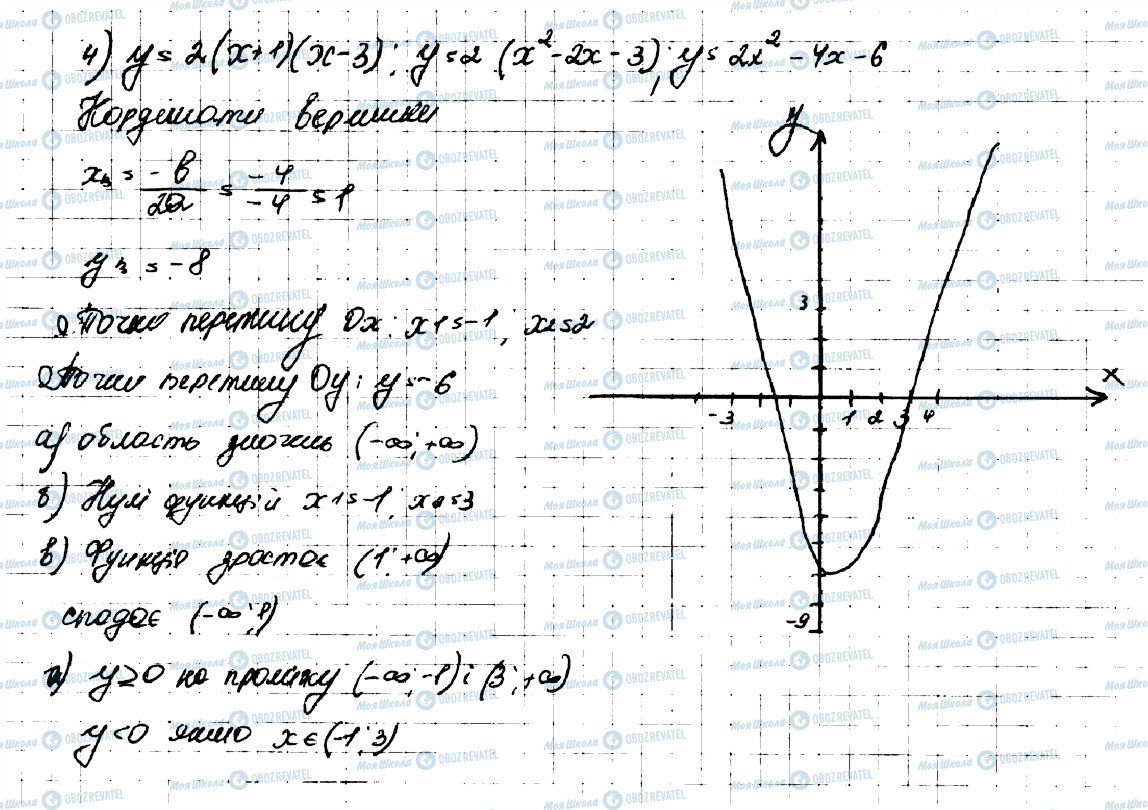 4) y = 2(x+1)(x-3); y = 2(x²-2x-3); y = 2x²-4x-6
Кординати вершини
xв = -b/2a = -4/-4 = 1
yв = -8
Точка перетину Ox: x1 = -1, x2 = 2
Точки перетину Oy: y = -6
а) область значень (-∞; +∞)
б) Нулі функцій x1 = -1; x2 = 3
в) Функція зростає (1; +∞)
спадає (-∞; 1)
г) y ≥ 0 на проміжку (-∞; -1) і (3; +∞)
y < 0 якщо x ∈ (-1; 3)
y
3
x
-3 1 2 3 4
-9
Моя Школа OBOZREVATEL